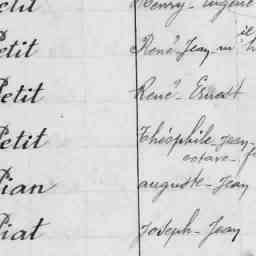 Petit Henry-Eugène
il
Petit René Jean-m
Petit René-Ernest
Petit Théophile-Jean-
octave-
Pian auguste-Jean
Piat Joseph-Jean